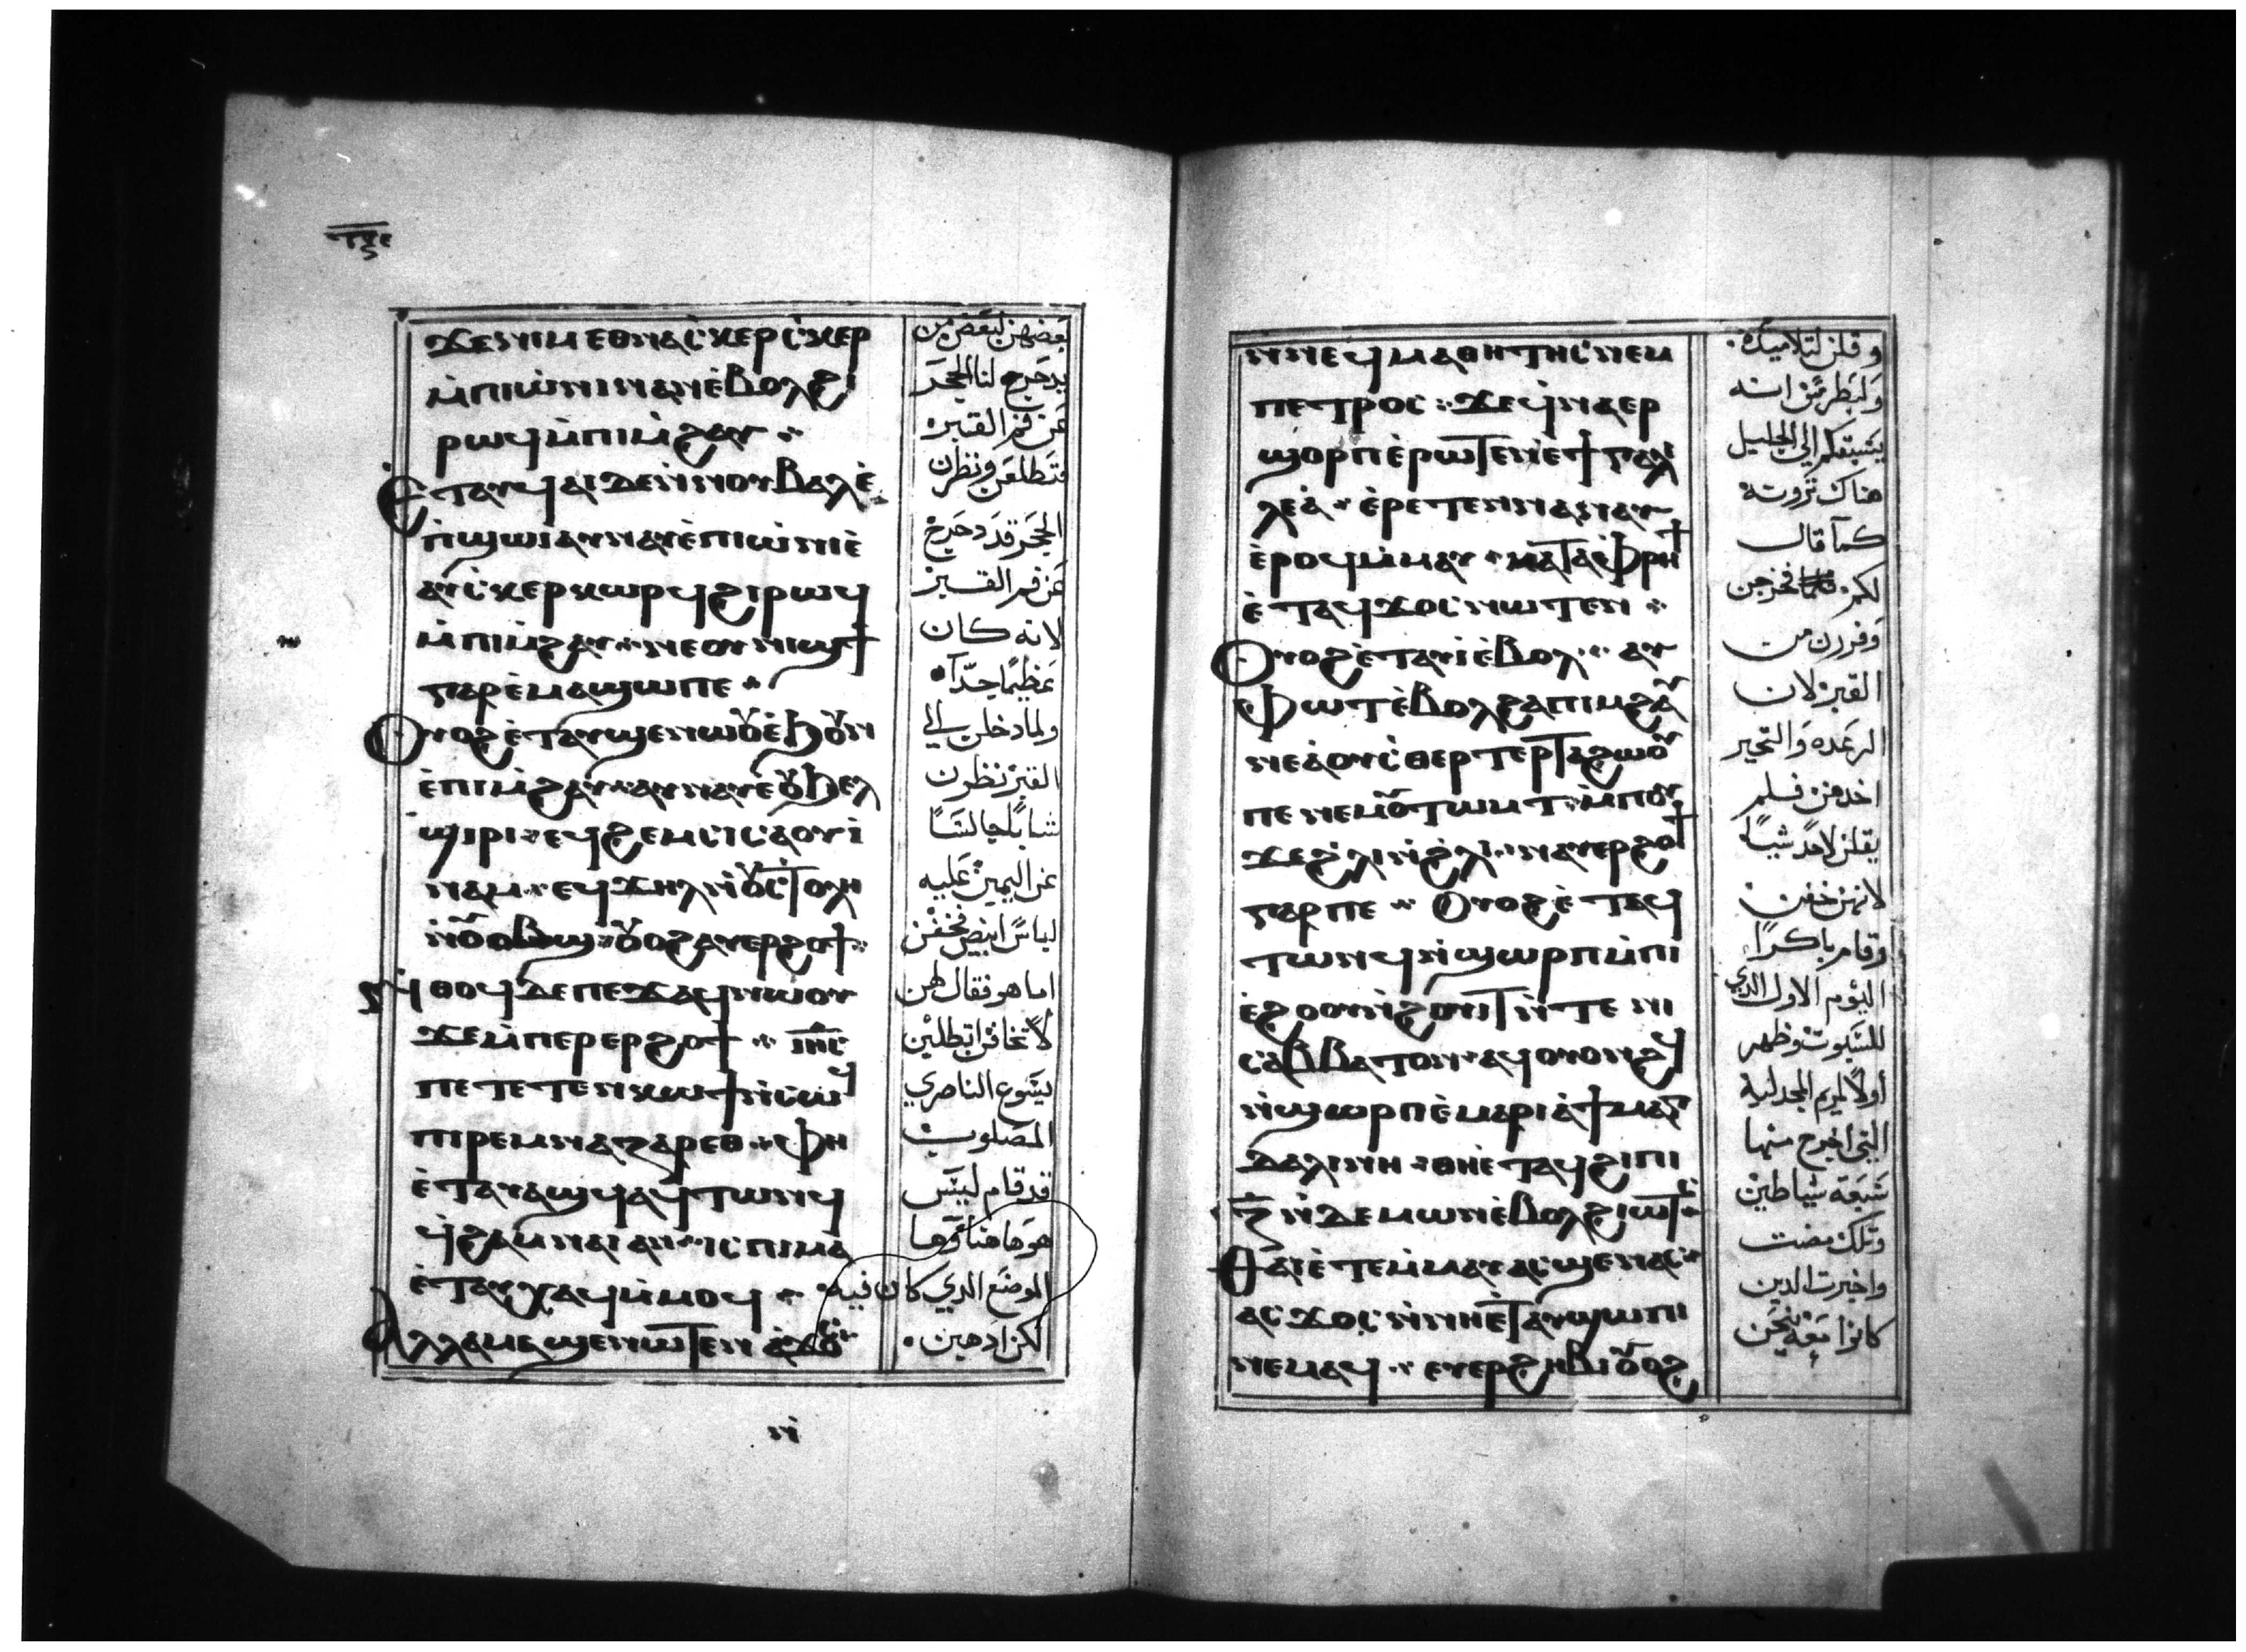 ⲧⲝⲋ
ϫⲉⲛⲓⲙ ⲉⲑⲛⲁⲥ̀ⲕⲉⲣⲥ̀ⲕⲉⲣ
ⲙ̀ⲡⲓⲱ̀ⲛⲓ ⲛⲁⲛ ⲉ̀ⲃⲟⲗϩⲓ
ⲣⲱϥ ⲙ̀ⲡⲓⲙ̀ϩⲁⲩ
ⲉ̀ⲧⲁⲩϥⲁⲓ ⲇⲉ ⲛ̀ⲛⲟⲩⲃⲁⲗ ⲉ̀
ⲡ̀ϣⲱⲓ ⲁⲩⲛⲁⲩ ⲉ̀ⲡⲓⲱ̀ⲛⲓ ⲉ̀
ⲁⲩⲥ̀ⲕⲉⲣⲕⲱⲣϥ ϩⲓⲣⲱϥ
ⲙ̀ⲡⲓⲙ̀ϩⲁⲩ ⲛⲉⲟⲩⲛⲓϣϯ
ⲅⲁⲣ ⲉ̀ⲙⲁϣⲱ ⲡⲉ
ⲟⲩⲟϩ ⲉ̀ⲧⲁⲩϣⲉⲛⲱⲟⲩ ⲉ̀ϧⲟⲩⲛ
ⲉ̀ⲡⲓⲙ̀ϩⲁⲩ ⲁⲩⲛⲁⲩ ⲉ̀ⲟⲩϧⲉⲗ
ϣⲓⲣⲓ ⲉϥϩⲉⲙⲥⲓ ⲥⲁⲟⲩⲓ̀
ⲛⲁⲙ ⲉϥϫⲏⲗ ⲛ̀ⲟⲩⲥ̀ⲧⲟⲗⲏ
ⲛ̀ⲟⲩⲱⲃϣ ⲟⲩⲟϩ ⲁⲩⲉⲣϩⲟϯ
ⲛ̀ⲑⲟϥ ⲇⲉ ⲡⲉϫⲁϥ ⲛⲱⲟⲩ
ϫⲉ ⲙ̀ⲡⲉⲣⲉⲣϩⲟϯ ⲓⲏⲥ
ⲡⲉⲧⲉⲧⲉⲛⲕⲱϯ ⲛ̀ⲥⲱϥ
ⲡⲓⲣⲉⲙⲛⲁⲍⲁⲣⲉⲑ ⲫⲏ
ⲉ̀ⲧⲁⲩⲁϣϥ ⲁϥⲧⲱⲛϥ
ϥ̀ⲭⲁⲙⲛⲁⲓ ⲁⲛ ⲓⲥ ⲡⲓⲙⲁ
ⲉ̀ⲧⲁⲩⲭⲁϥ ⲙ̀ⲙⲟϥ
ⲁⲗⲗⲁ ⲙⲁϣⲉⲛⲱⲧⲉⲛ ⲁ̀ϫⲟⲥ
ⲛ̀
بعضهن لبعض من
يدحرج لنا الحجر
عن فم القبر
فتطلعن ونظرن
الحجر قد دحرج
عن فم القبر
لانه كان
عظيمًا جدًا
ولما دخلن الي
القبر نظرن
شابًا جالسًا
عن اليمين عليه
لباسًا ابيض فخفن
اما هو فقال لهن
لا تخافن اتطلبن
يسوع الناصري
المصلوب
قد قام ليس
هو هاهنا وها
الموضع الدي كان فيه
لكن ادهبن
ⲛ̀ⲛⲉϥⲙⲁⲑⲏⲧⲏⲥ ⲛⲉⲙ
ⲡⲉⲧⲣⲟⲥ ϫⲉ ϥ̀ⲛⲁⲉⲣ
ϣⲟⲣⲡ ⲉ̀ⲣⲱⲧⲉⲛ ⲉ̀ϯⲅⲁⲗⲓ
ⲗⲉⲁ̀ ⲉ̀ⲣⲉⲧⲉⲛⲛⲁⲛⲁⲩ
ⲉ̀ⲣⲟϥ ⲙ̀ⲙⲁⲩ ⲕⲁⲧⲁ ⲫ̀ⲣⲏϯ
ⲉ̀ⲧⲁϥϫⲟⲥ ⲛⲱⲧⲉⲛ
ⲟⲩⲟϩ ⲉ̀ⲧⲁⲩⲓ̀ ⲉ̀ⲃⲟⲗ ⲁⲩ
ⲫⲱⲧ ⲉ̀ⲃⲟⲗϩⲁ ⲡⲓⲙϩⲁⲩ
ⲛⲉⲁ̀ⲟⲩⲥ̀ⲑⲉⲣⲧⲉⲣ ⲧⲁϩⲱⲟⲩ
ⲡⲉ ⲛⲉⲙ ⲟⲩⲧⲱⲙⲧ ⲙ̀ⲡⲟⲩ
ϫⲉ ϩ̀ⲗⲓ ⲛ̀ϩ̀ⲗⲓ ⲛⲁⲩⲉⲣϩⲟϯ
ⲅⲁⲣ ⲡⲉ ⲟⲩⲟϩ ⲉ̀ⲧⲁϥ
ⲧⲱⲛϥ ⲛ̀ϣⲱⲣⲡ ⲙ̀ⲡⲓ
ⲉ̀ϩⲟⲟⲩ ⲛ̀ϩⲟⲩⲓⲧ ⲛ̀ⲧⲉ ⲛⲓ
ⲥⲁⲃⲃⲁⲧⲟⲛ ⲁϥⲟⲩⲟⲛϩϥ
ⲛ̀ϣⲱⲣⲡ ⲉ̀ⲙⲁⲣⲓⲁ̀ ϯⲙⲁⲅ
ⲇⲁⲗⲓⲛⲏ ⲑⲏ ⲉ̀ⲧⲁϥϩⲓⲡⲓ
ⲍ̄ ⲛ̀ⲇⲉⲙⲱⲛ ⲉ̀ⲃⲟⲗϩⲓⲱⲧⲥ
ⲑⲁⲓ ⲉ̀ⲧⲉⲙ̀ⲙⲁⲩ ⲁⲥϣⲉⲛⲁⲥ
ⲁⲥϫⲟⲥ ⲛ̀ⲛⲏ ⲉ̀ⲧⲁⲩϣⲱⲡⲓ
ⲛⲉⲙⲁϥ ⲉⲩⲉⲣϩⲏⲃⲓ ⲟⲩⲟϩ
وقلن لتلاميده
ولبطرس انه
يسبقكم الي الجليل
هناك ترونه
كما قال
لكم فخرجن
وفررن من
القبر لان
الرعده والتحير
اخدهن فلم
يقلن لاحد شيًا
لانهن خفن
وقام باكرًا
اليوم الاول الدي
للسبوت وظهر
أولًا لمريم المجدلية
التي اخرج منها
سبعة شياطين
وتلك مضت
واخبرت الدين
كانوا معه